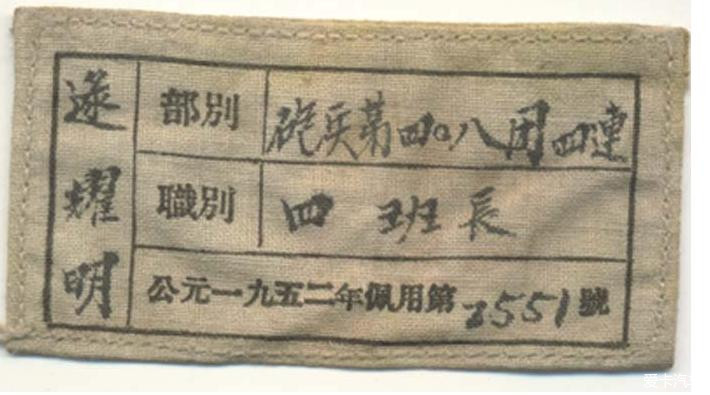 遂耀明
部別 砲兵第四〇八团四連
職別 四班長
公元一九五二年佩用第2551號
爱卡汽